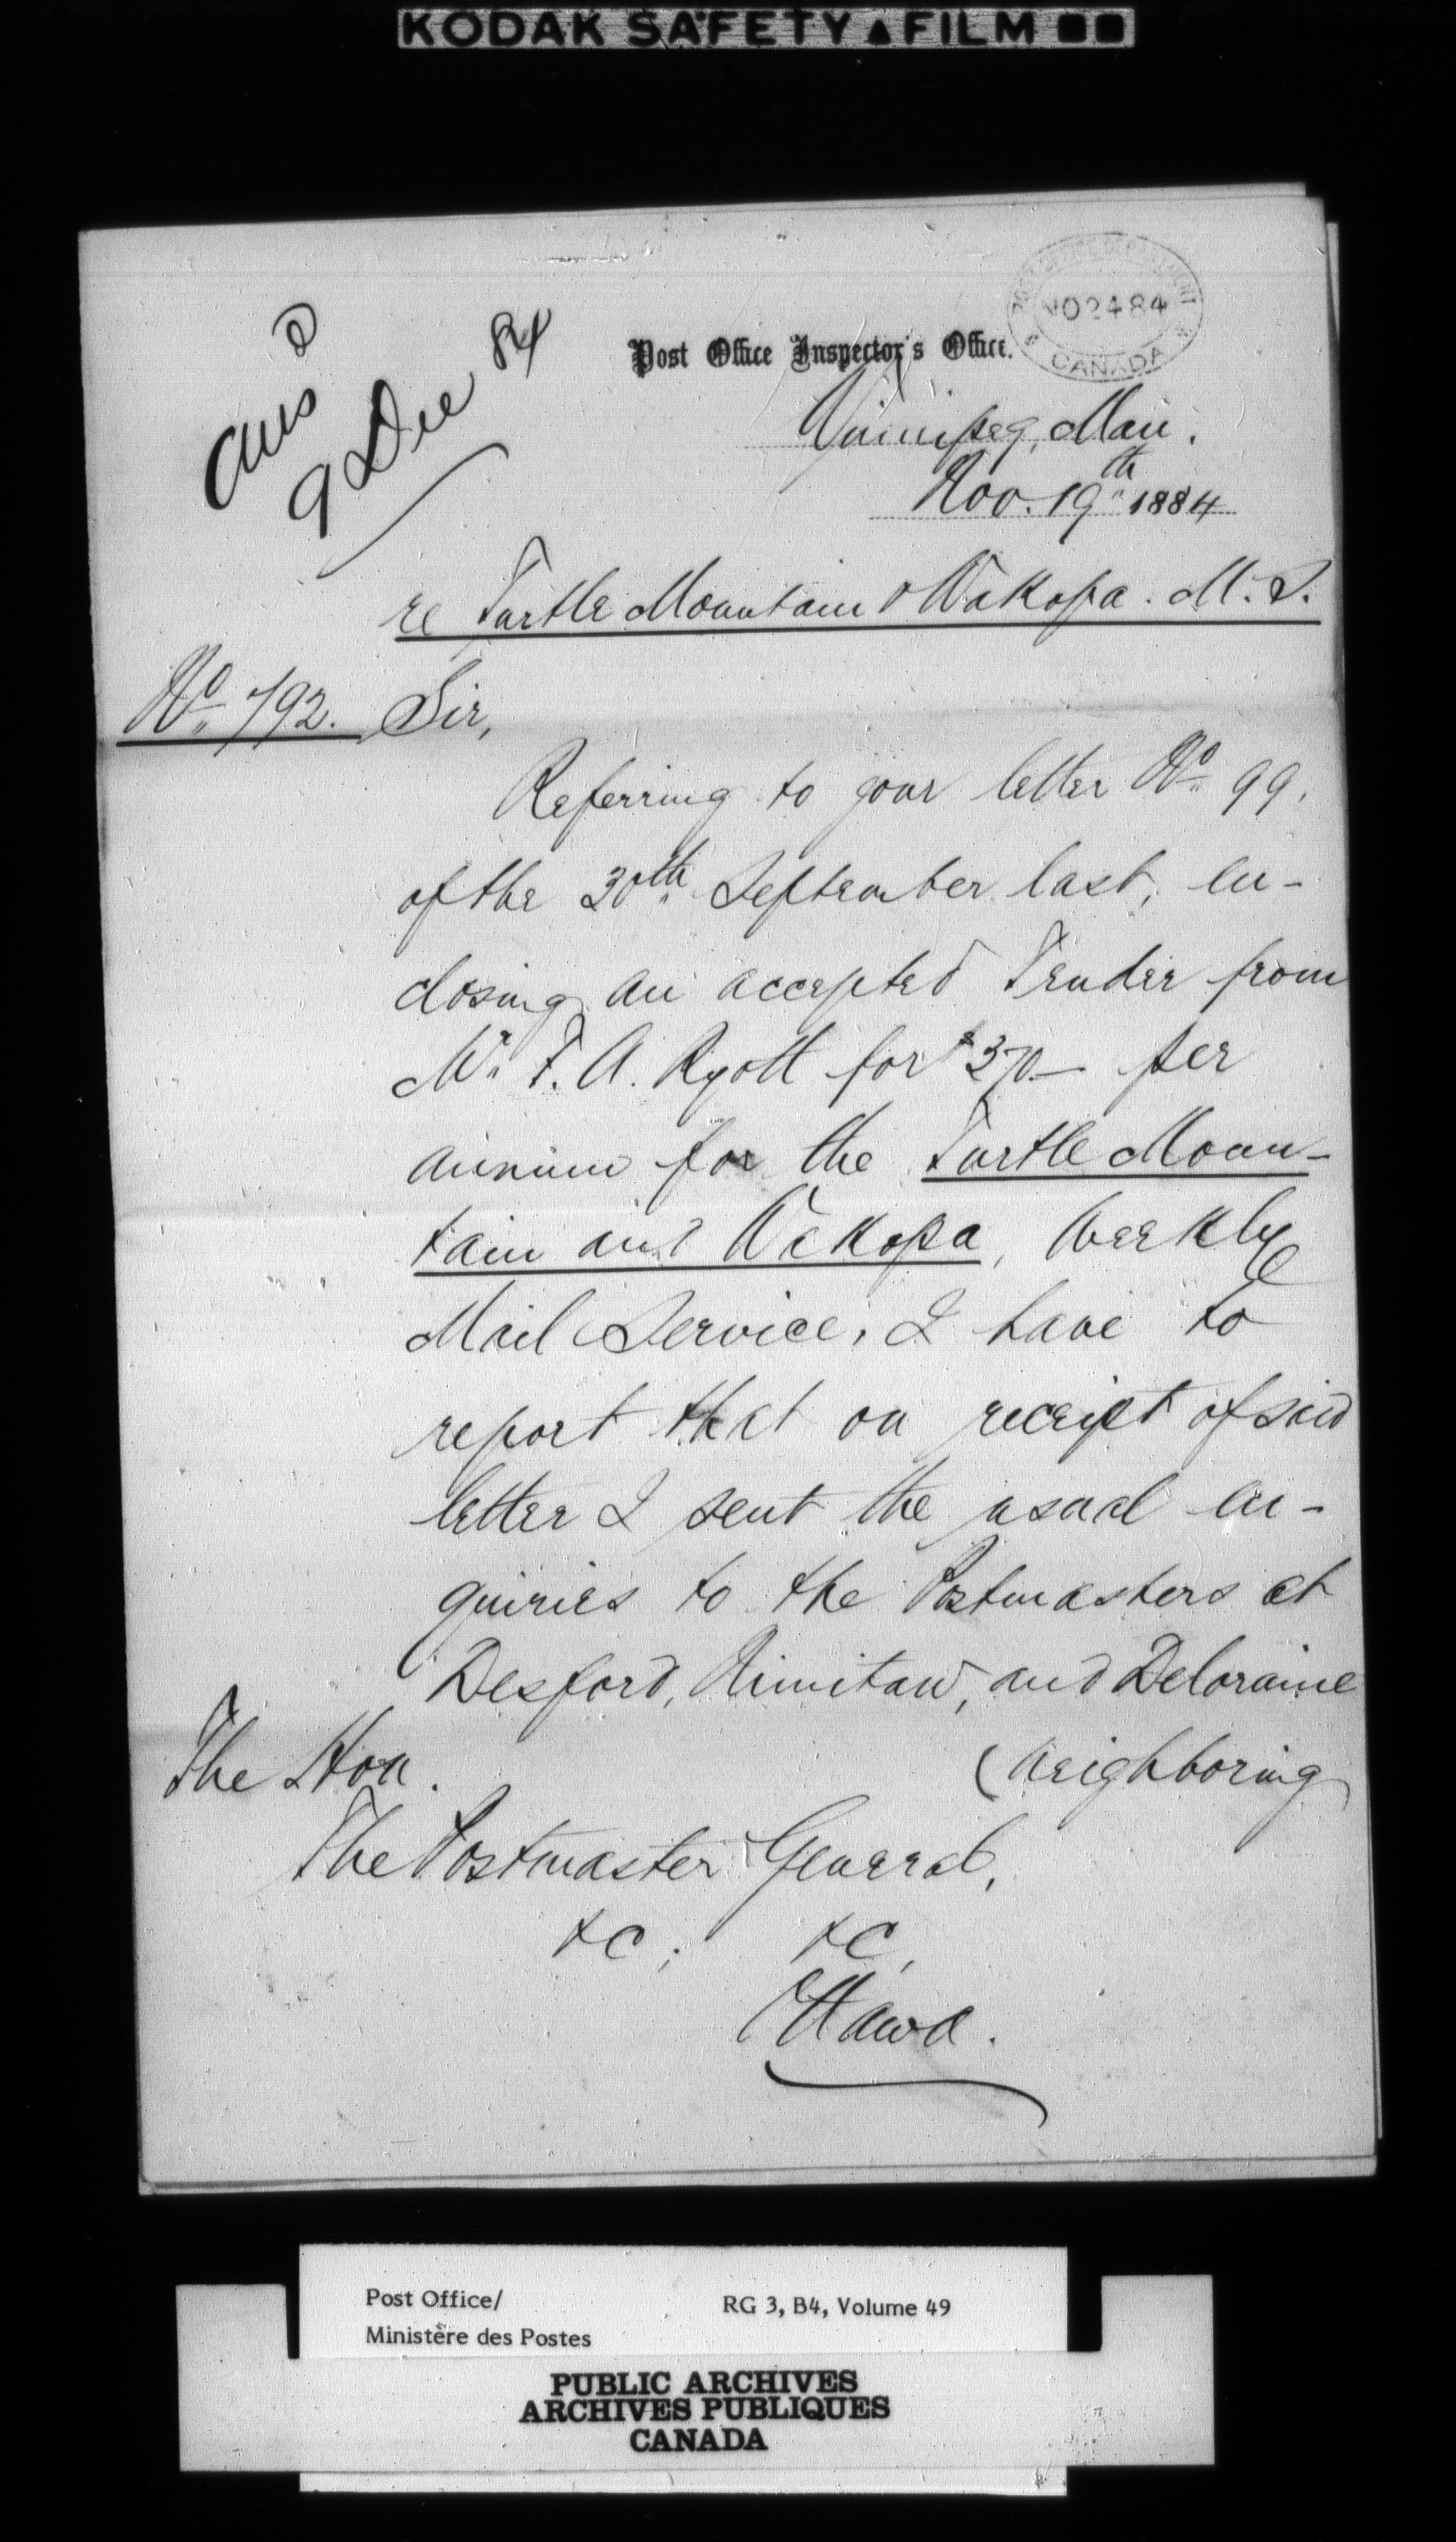 KODAK SAFETY FILM
POST OFFICE DEPARTMENT
NO 24 84
CANADA
Ans d
9 Dec 84
Post Office Inspector's Office.
Winnipeg, Man.
Nov. 19th 1884
re Turtle Mountain & Wakopa. M.S.
No 792. Sir,
Referring to your letter No 99,
of the 30th September last, en-
closing an accepted Tender from
Mr. F. A. Ryott for $370— per
annum for the Turtle Moun-
tain and Wakopa, Weekly
Mail Service, I have to
report that on receipt of said
letter I sent the usual en-
quiries to the Postmasters at
Desford, Nimitaw, and Deloraine
(neighboring
The Hon.
The Postmaster General,
&c; &c,
Ottawa.
Post Office/
Ministère des Postes
RG 3, B4, Volume 49
PUBLIC ARCHIVES
ARCHIVES PUBLIQUES
CANADA